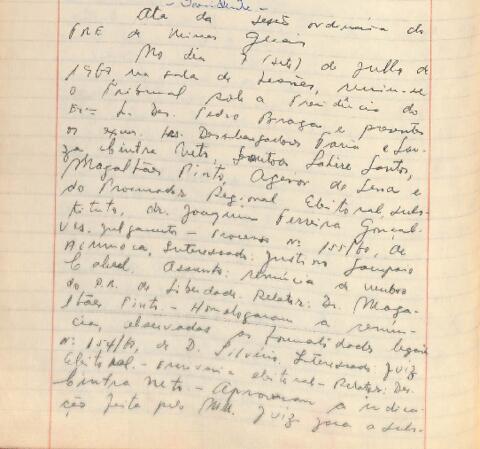 - Presidente -
Ata da sessão ordinária do
TRE de Minas Gerais
No dia 7 (sete) de Julho de
1960, na sala de sessões, reuniu-se
o Tribunal sob a Presidência do
Exmo. Sr. Des. Pedro Braga e presentes
os exmos. Srs. Desembargadores Faria e Sou-
za, Cintra Neto, Santos, Santos,
Magalhães Pinto, Agenor de Sena e
do Procurador Regional Eleitoral, subs-
tituto, dr. Joaquim Ferreira Gonçal-
ves. Julgamento - Processo nº 155/60, de
Interessado: Justino Sampaio
Cabral. Assunto: renúncia de membro
do P.R. de Liberdade. Relator: Dr. Maga-
lhães Pinto. - Homologaram a renún-
cia, observadas as formalidades legais
Nº 154/60, de D. Silvério, Interessado: Juiz
Eleitoral. - eleitoral - Relator: Des.
Cintra Neto. - Aprovaram a indica-
ção feita pelo MM. Juiz para a subs-